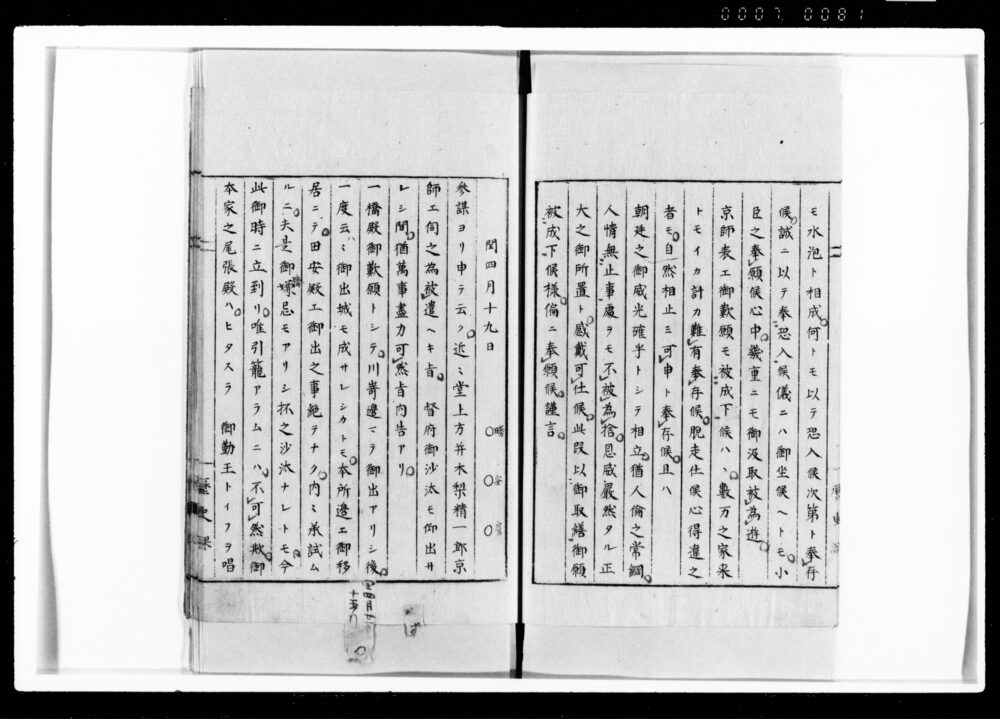 0007 0081
モ水泡ト相成何トモ以テ恐入候次第ト奉存
候誠ニ以テ奉恐入候儀ニハ御坐候ヘトモ小
臣之奉願候心中幾重ニモ御汲取被為遊
京師表エ御歎願モ被成下候ハヽ数万之家来
トモイカ計カ難有奉存候脱走仕候心得違之
者モ自然相止ミ可申ト奉存候且ハ
朝廷之御威光確乎トシテ相立猶人倫之常綱
人情無止事處ヲモ不被為捨恩威嚴然タル正
大之御所置ト感戴可仕候此段以御取繕御願
被成下候様偏ニ奉願候謹言
閏四月十九日
參謀ヨリ申テ云ク近々堂上方并木梨精一郎京
師エ伺之為被遣ヘキ旨督府御沙汰モ仰出サ
レシ間猶萬事盡力可然旨内告アリ
一橋殿御歎願トシテ川嵜邊マテ御出アリシ後
一度云々御出城モ成サレシカトモ本所邉エ御移
居ニテ田安殿エ御出之事絶テナク内々承試ム
ルニ夫是御嫌忌モアリシ抔之沙汰ナレトモ今
此御時ニ立到リ唯引籠アラムニハ不可然欺御
本家之尾張殿ハヒタスラ 御勤王トイヲヲ唱
歴史課